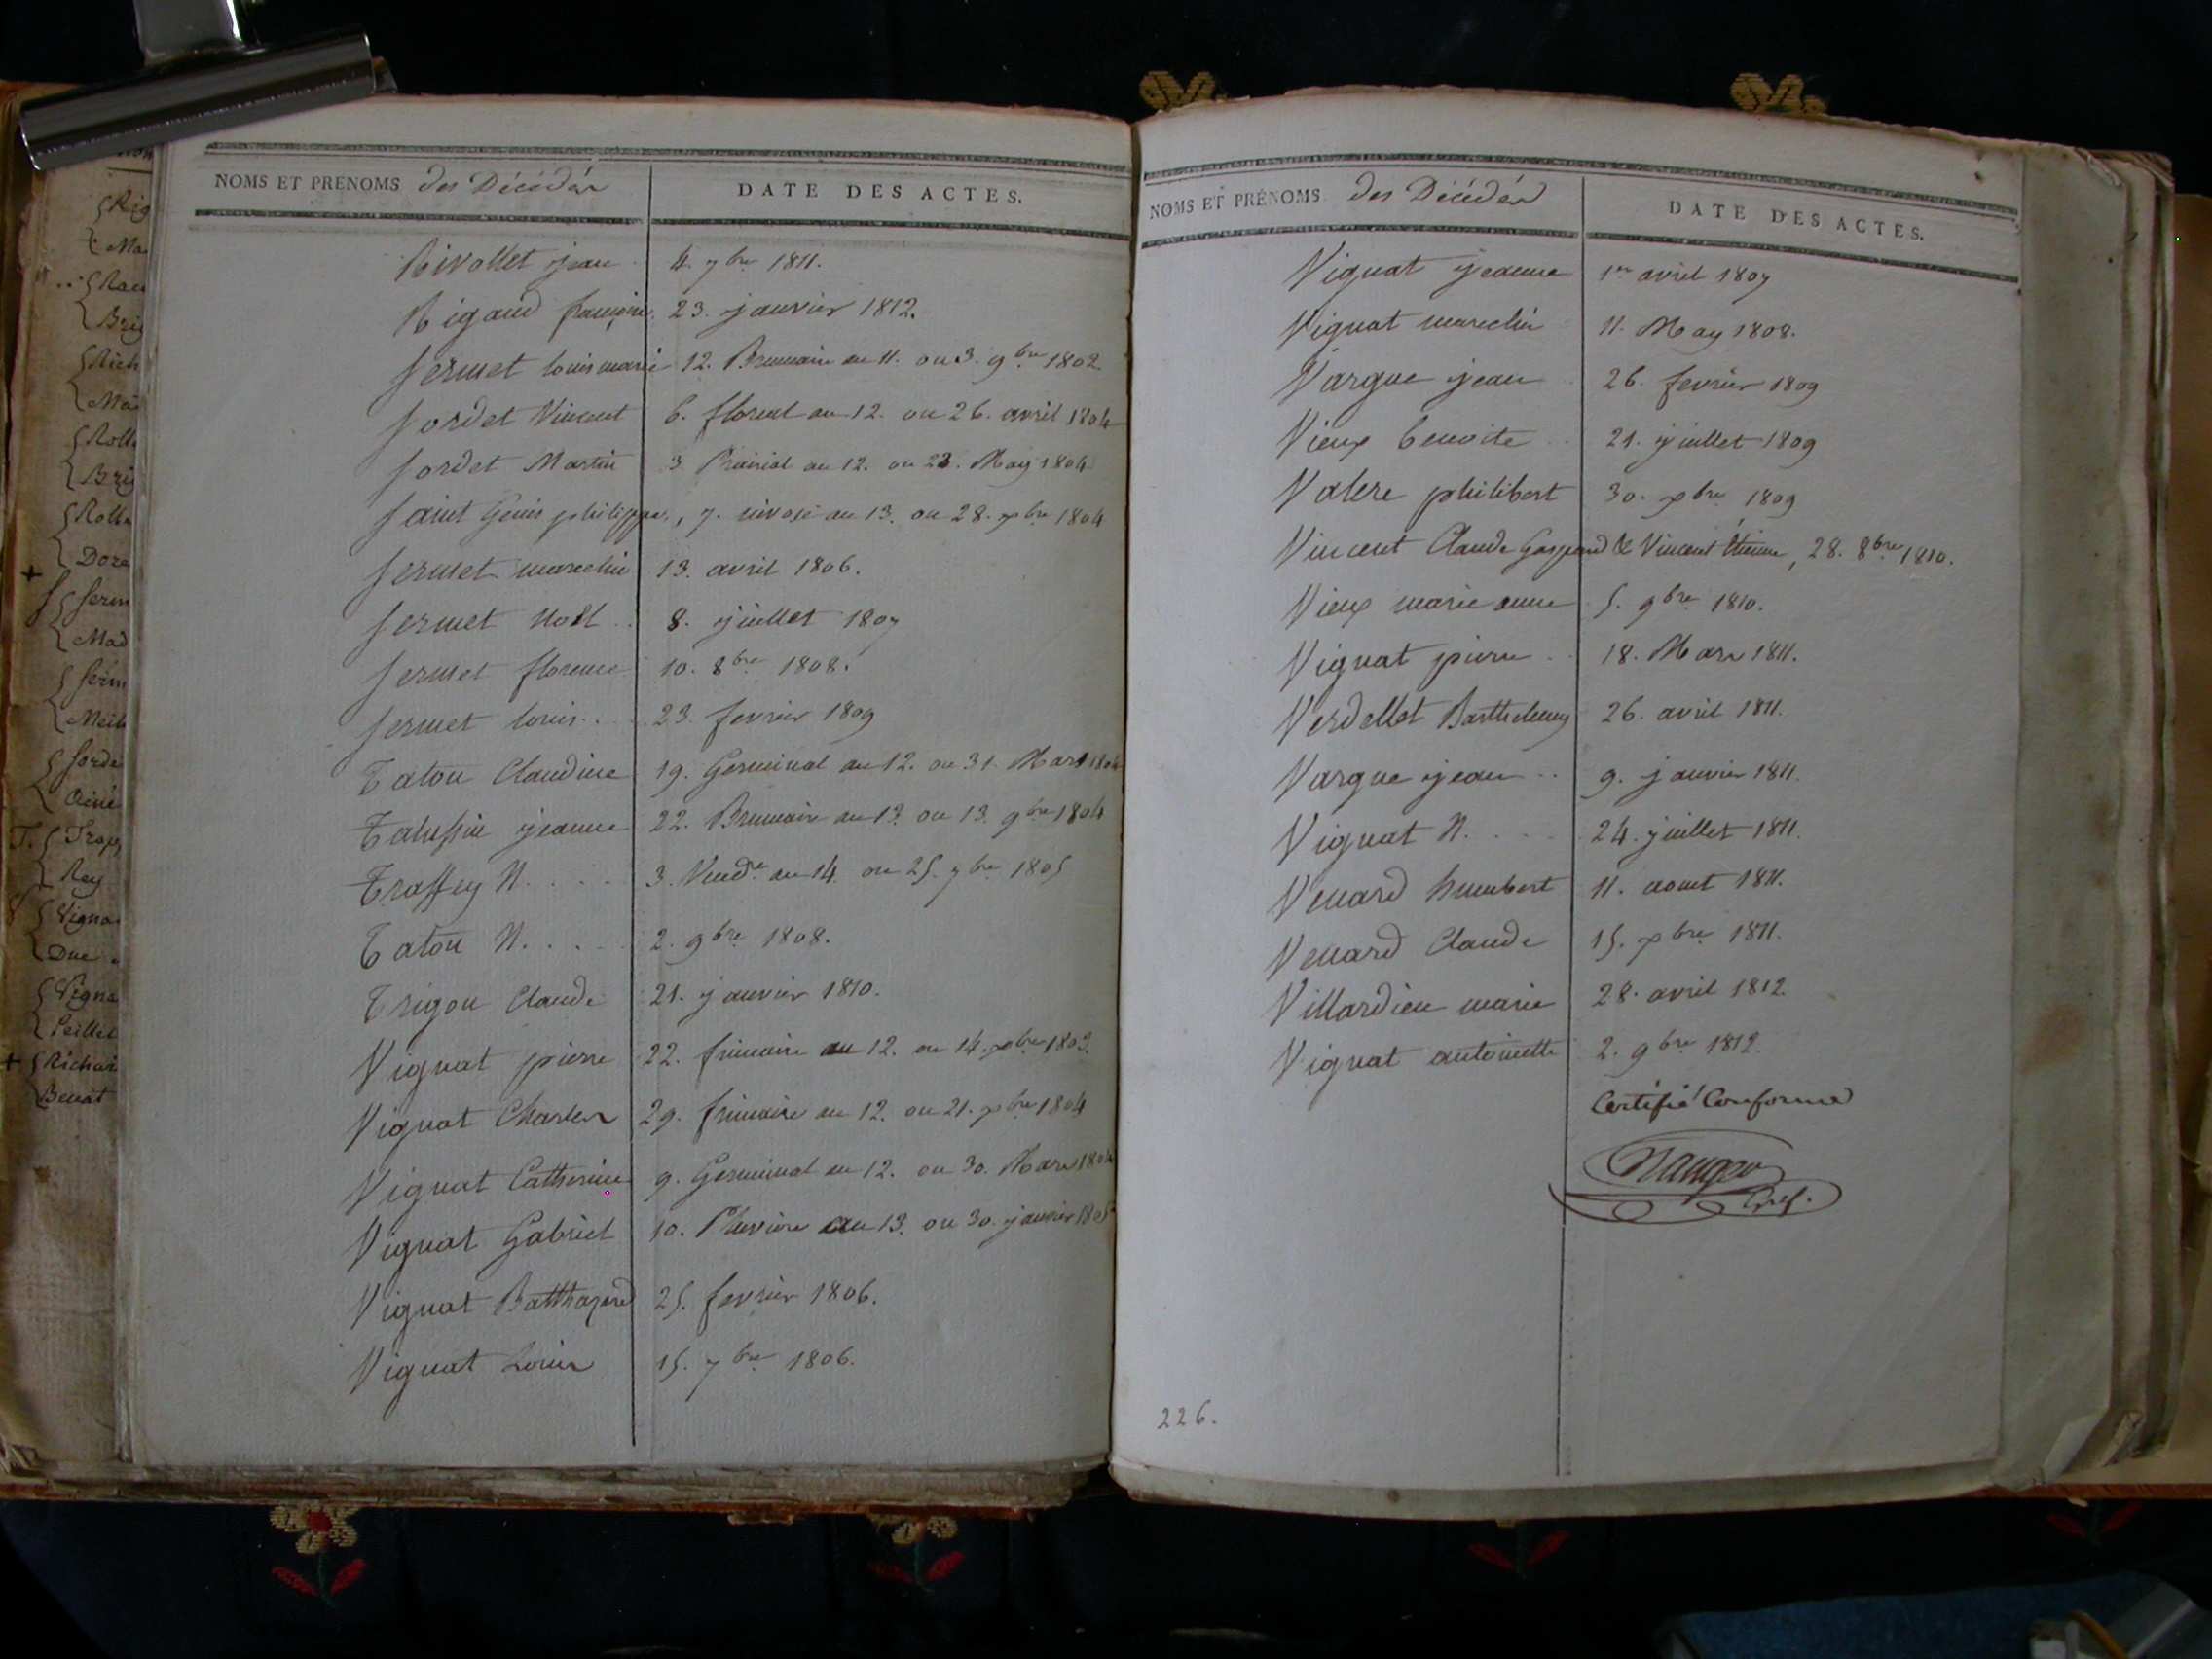 Rig
Ma
Rau
Brig
Rich
Mai
Roll
Brig
Rolla
Dore
+
S Serm
Mad
Serm
Meil
Sorde
Ainé
T. Trop
Rey
Vigna
Duc
Vigna
Peillet
+ Richar
Benat
NOMS ET PRENOMS des Décédés DATE DES ACTES.
Rivollet jean 4. 7bre 1811.
Rigaud françoise 23. janvier 1812.
Sermet louis marie 12. Brumaire an 11. ou 3. 9bre 1802
Sordet Vincent 6. floreal an 12. ou 26. avril 1804
Sordet Martin 3 Prairial an 12. ou 23. May 1804
Saint Genis philippe, 7. nivose an 13. ou 28. xbre 1804
Sermet marechie 13. avril 1806.
Sermet Noël .. 8. juillet 1807
Sermet florence 10. 8bre 1808.
Sermet louis .. 23. fevrier 1809
Taton Claudine 19. Germinal an 12. ou 31. Mars 1804
Talussie jeanne 22. Brumaire an 13. ou 13. 9bre 1804
Traffey N. . . . 3. Vendre an 14. ou 25. 7bre 1805
Taton N. . . . 2. 9bre 1808.
Trigon Claude 21. janvier 1810.
Vignat pierre 22. frimaire an 12. ou 14. xbre 1803.
Vignat Charles 29. frimaire an 12. ou 21. xbre 1804
Vignat Catherine 9. Germinal an 12. ou 30. Mars 1804
Vignat Gabriel 10. Pluviose an 13. ou 30. janvier 1805
Vignat Batthazard 25. fevrier 1806.
Vignat Louis 15. 7bre 1806.
NOMS ET PRÉNOMS des Décédés DATE DES ACTES.
Vignat jeanne 1er avril 1807
Vignat marechie 11. May 1808.
Vargue jean 26. fevrier 1809
Vieux benoite 21. juillet 1809
Valere philibert 30. xbre 1809
Vincent Claude Gaspard & Vincent Étienne, 28. 8bre 1810.
Vieux marie anne 5. 9bre 1810.
Vignat pierre .. 18. Mars 1811.
Verdellet Barthelemy 26. avril 1811.
Vargue jean .. 9. janvier 1811.
Vignat N. . . . 24. juillet 1811.
Venard humbert 11. aout 1811.
Venard Claude 15. xbre 1811.
Villardieu marie 28. avril 1812.
Vignat antoinette 2. 9bre 1812.
Certifié Conforme
Gref.
226.